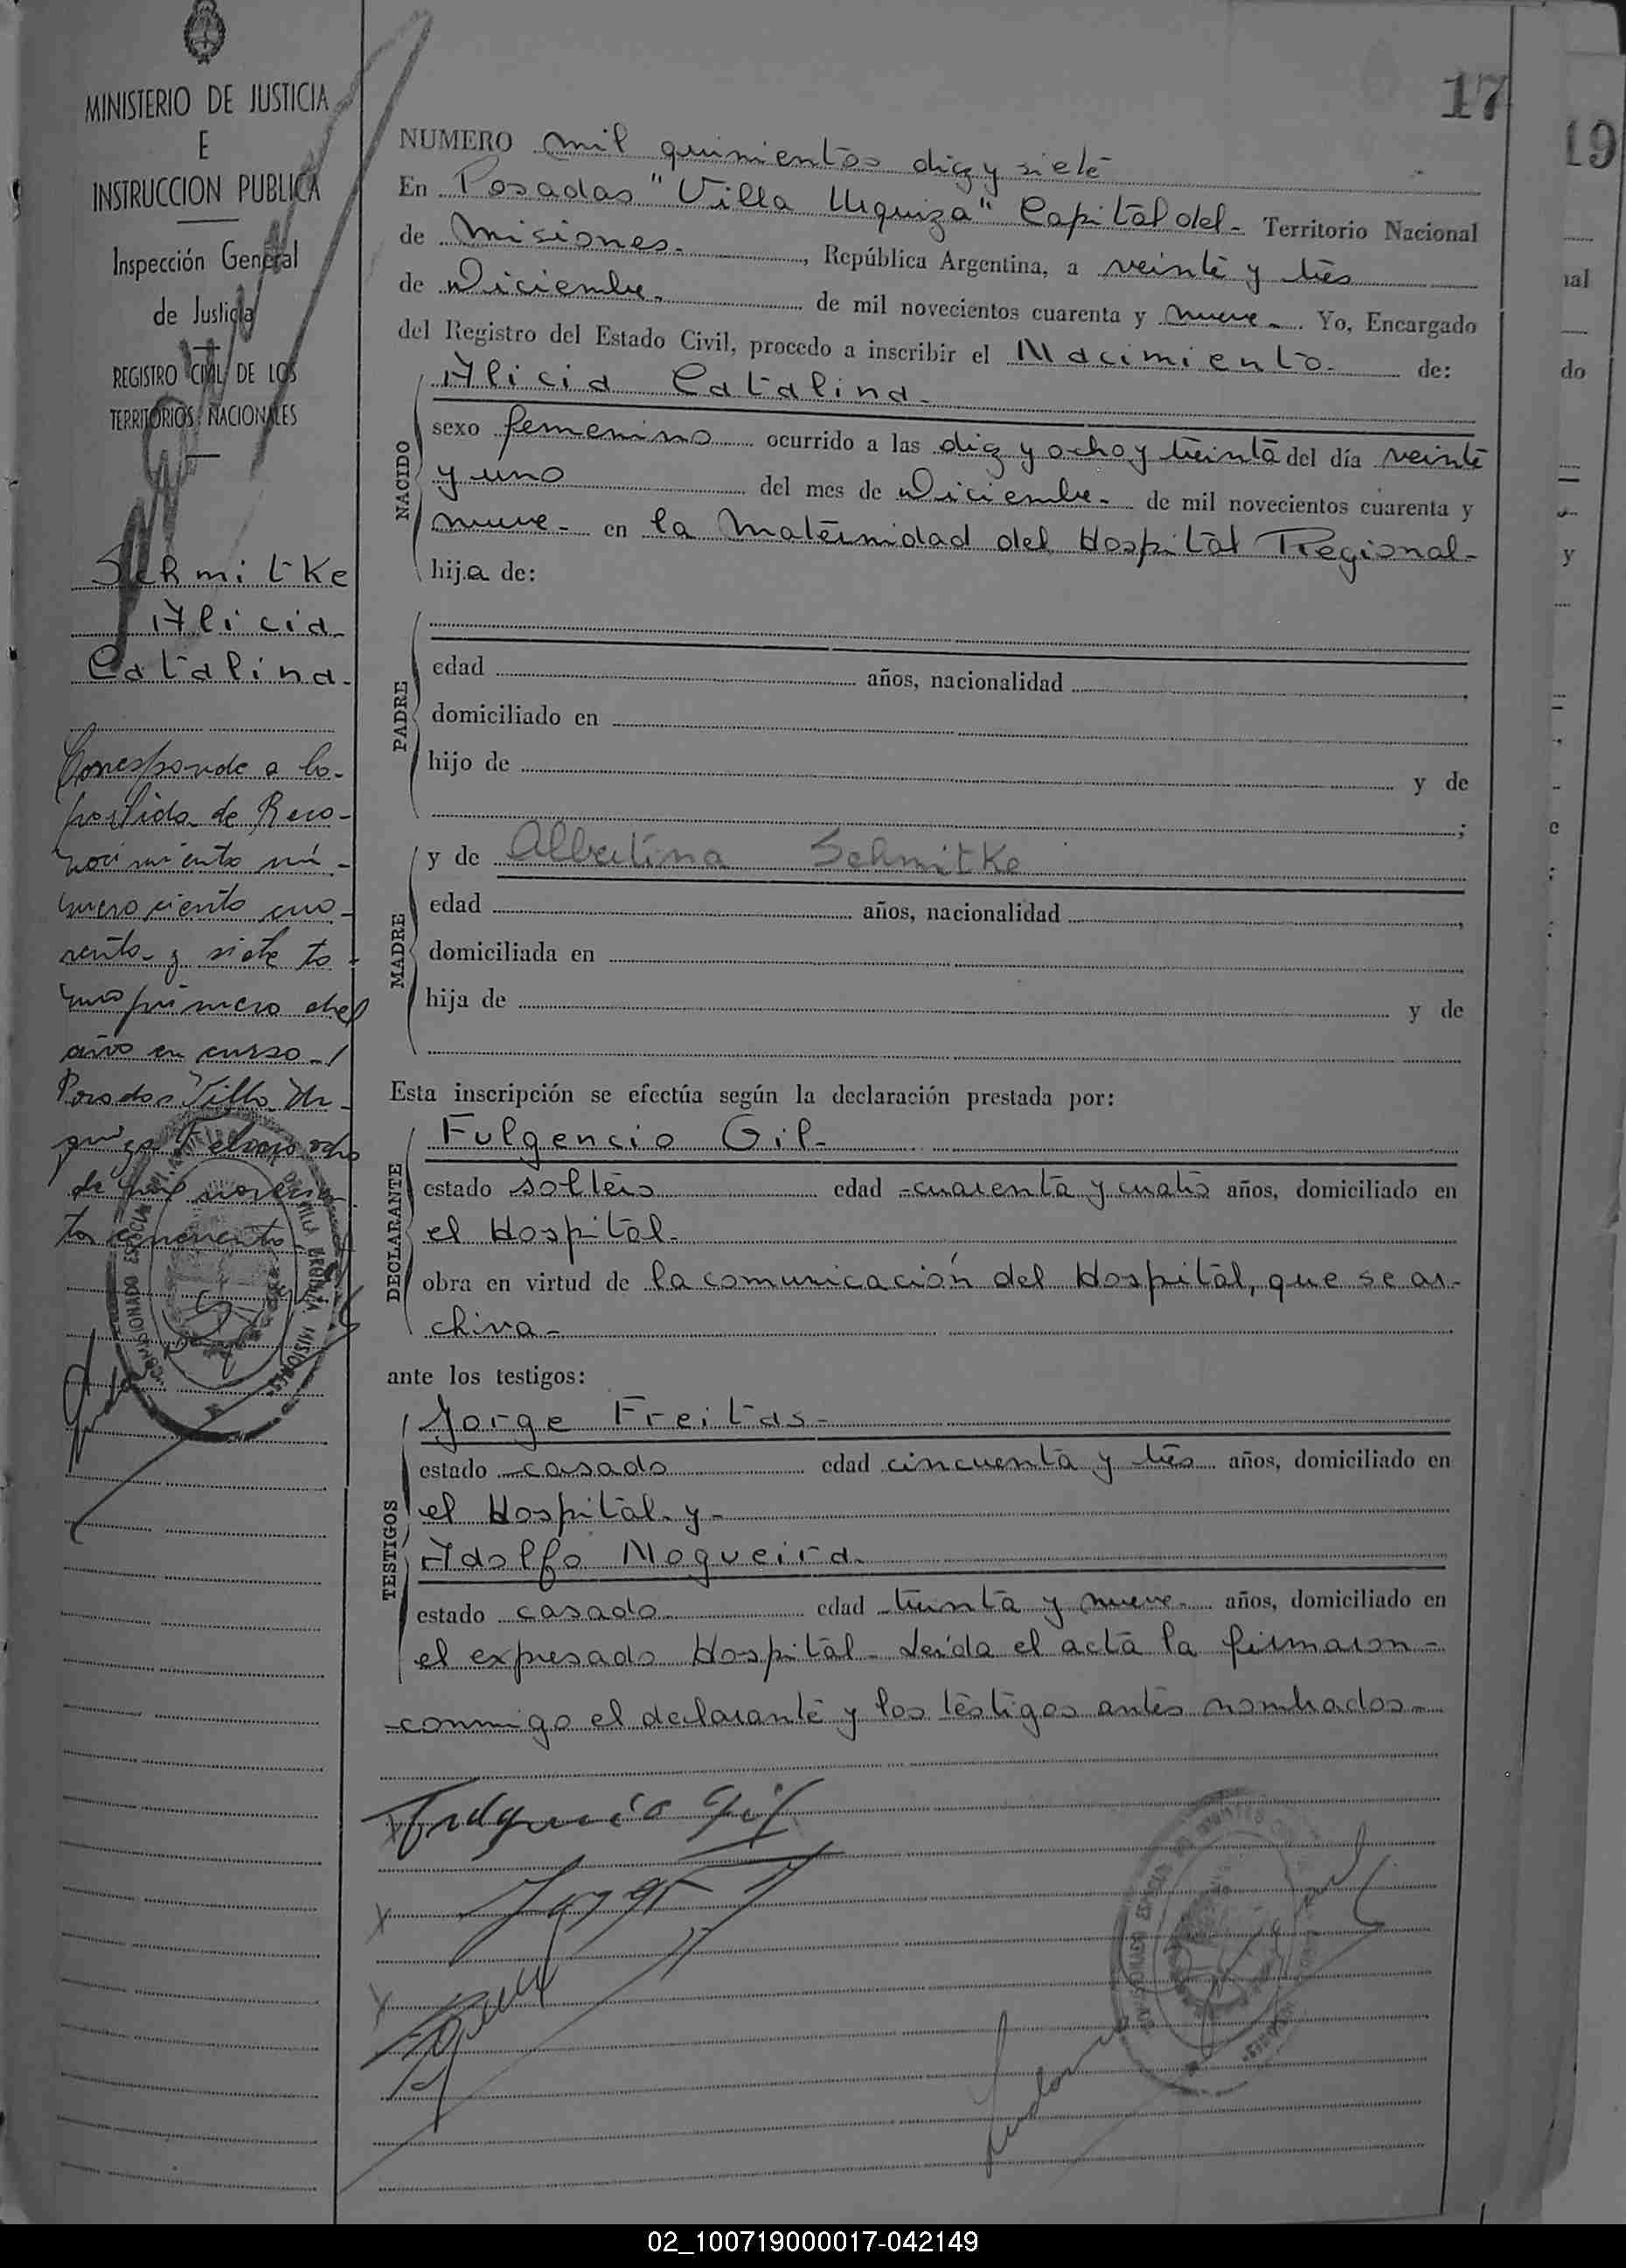 MINISTERIO DE JUSTICIA
E
INSTRUCCION PUBLICA
Inspección General
de Justicia
REGISTRO CIVIL DE LOS
TERRITORIOS NACIONALES
Schmitke
Alicia
Catalina.
Corresponde a la
partida de Reco-
nocimiento nú-
mero ciento cua-
renta y siete to-
mo primero del
año en curso
Posadas Villa Ur-
quiza Febrero ocho
de mil novecien
tos cincuenta
17
NUMERO mil quinientos diez y siete
En Posadas "Villa Urquiza" Capital del - Territorio Nacional
de Misiones - , República Argentina, a veinte y tres
de Diciembre - de mil novecientos cuarenta y nueve - Yo, Encargado
del Registro del Estado Civil, procedo a inscribir el Nacimiento - de:
NACIDO
Alicia Catalina -
sexo femenino ocurrido a las diez y ocho y treinta del día veinte
y uno del mes de Diciembre - de mil novecientos cuarenta y
nueve - en la Maternidad del Hospital Regional -
hija de:
PADRE
edad años, nacionalidad
domiciliado en
hijo de y de
;
MADRE
y de Albertina Schmitke
edad años, nacionalidad
domiciliada en
hija de y de
Esta inscripción se efectúa según la declaración prestada por:
DECLARANTE
Fulgencio Gil -
estado soltero edad cuarenta y cuatro años, domiciliado en
el Hospital -
obra en virtud de la comunicación del Hospital, que se ar-
chiva -
ante los testigos:
TESTIGOS
Jorge Freitas -
estado casado edad cincuenta y tres años, domiciliado en
el Hospital - y -
Adolfo Nogueira.
estado casado edad treinta y nueve - años, domiciliado en
el expresado Hospital - Leída el acta la firmaron -
conmigo el declarante y los testigos antes nombrados -
Fulgencio Gil
Jorge F
19
nal
do
y
02_100719000017-042149